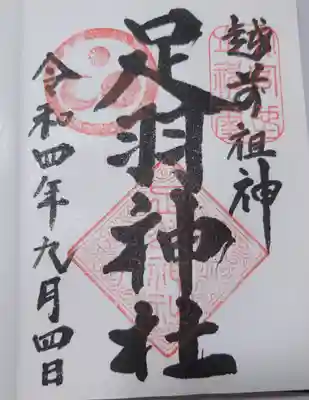 越前祖神
足羽神社
令和四年九月四日